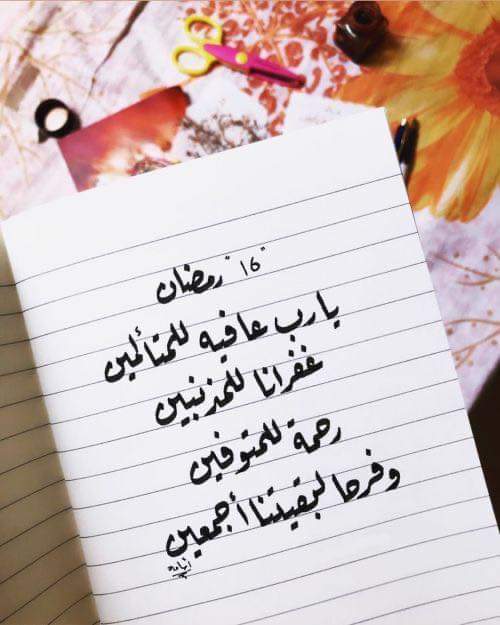 "16" رمضان
يارب عافيه للمتألمين
غفرانا للمذنبين
رحمة للمتوفين
وفرحا لبقيتنا أجمعين